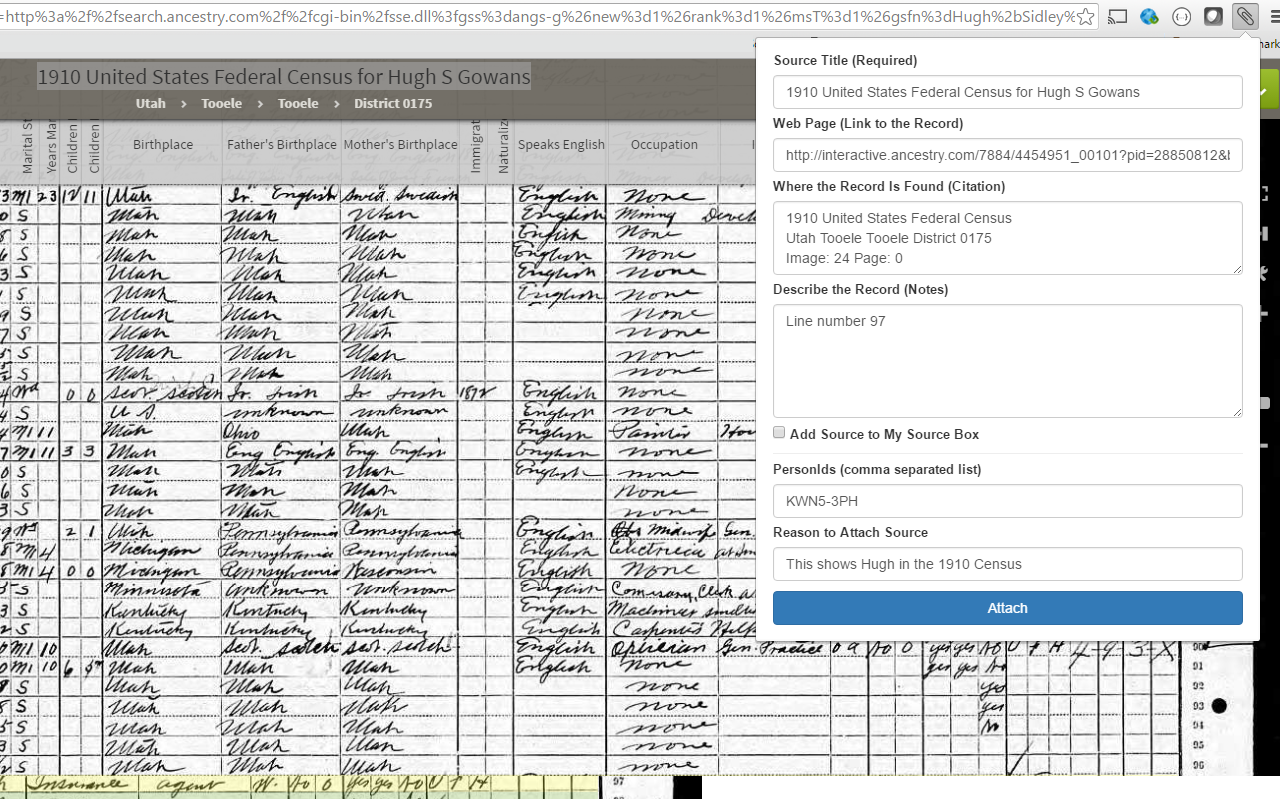 =http%3a%2f%2fsearch.ancestry.com%2f%2fcgi-bin%2fsse.dll%3fgss%3dangs-g%26new%3d1%26rank%3d1%26msT%3d1%26gsfn%3dHugh%2bSidley%
1910 United States Federal Census for Hugh S Gowans
Utah > Tooele > Tooele > District 0175
Marital St Years Mar Children Children Birthplace Father's Birthplace Mother's Birthplace Immigrat Naturalize Speaks English Occupation
3 M1 23 12 11 Utah Ir. English Swed. Swedish English None
S Utah Utah Utah English Mining
S Utah Utah Utah English None
S Utah Utah Utah English None
3 S Utah Utah Utah English None
S Utah Utah Utah English None
S Utah Utah Utah None
7 S Utah Utah Utah None
S Utah Utah Utah None
S Utah Utah Utah None
4 Wd 0 0 Scot. Scotch Ir. Irish Ir Irish 1872 English None
4 S U S. unknown unknown English None
M1 11 Utah Ohio Utah English Painter
7 M1 11 3 3 Utah Eng English Eng. English English None
0 S Utah Utah Utah English None
6 S Utah Utah Utah None
3 S Utah Utah Utah None
2 1 Utah Pennsylvania Pennsylvania English Midwife Gen.
8 M1 4 Michigan Pennsylvania Pennsylvania English
8 M1 4 0 0 Michigan Pennsylvania Wisconsin English None
S Minnesota Unknown Unknown English
3 S Kentucky Kentucky Kentucky English
2 S Kentucky Kentucky Kentucky English
M1 10 Utah Scot. Scotch Scot. Scotch English Optician Gen. Practice O A No O yes yes No U F H 4-9 3-X 90
0 M1 10 6 5 Utah Utah Utah English None yes yes No 91
S Utah Utah Utah None yes 92
S Utah Utah Utah None yes 93
S Utah Utah Utah None No 94
3 S Utah Utah Utah None 95
2 S Utah Utah Utah None 96
Insurance agent W. No O yes yes No U F H 97
Source Title (Required)
1910 United States Federal Census for Hugh S Gowans
Web Page (Link to the Record)
http://interactive.ancestry.com/7884/4454951_00101?pid=28850812&
Where the Record Is Found (Citation)
1910 United States Federal Census
Utah Tooele Tooele District 0175
Image: 24 Page: 0
Describe the Record (Notes)
Line number 97
Add Source to My Source Box
PersonIds (comma separated list)
KWN5-3PH
Reason to Attach Source
This shows Hugh in the 1910 Census
Attach